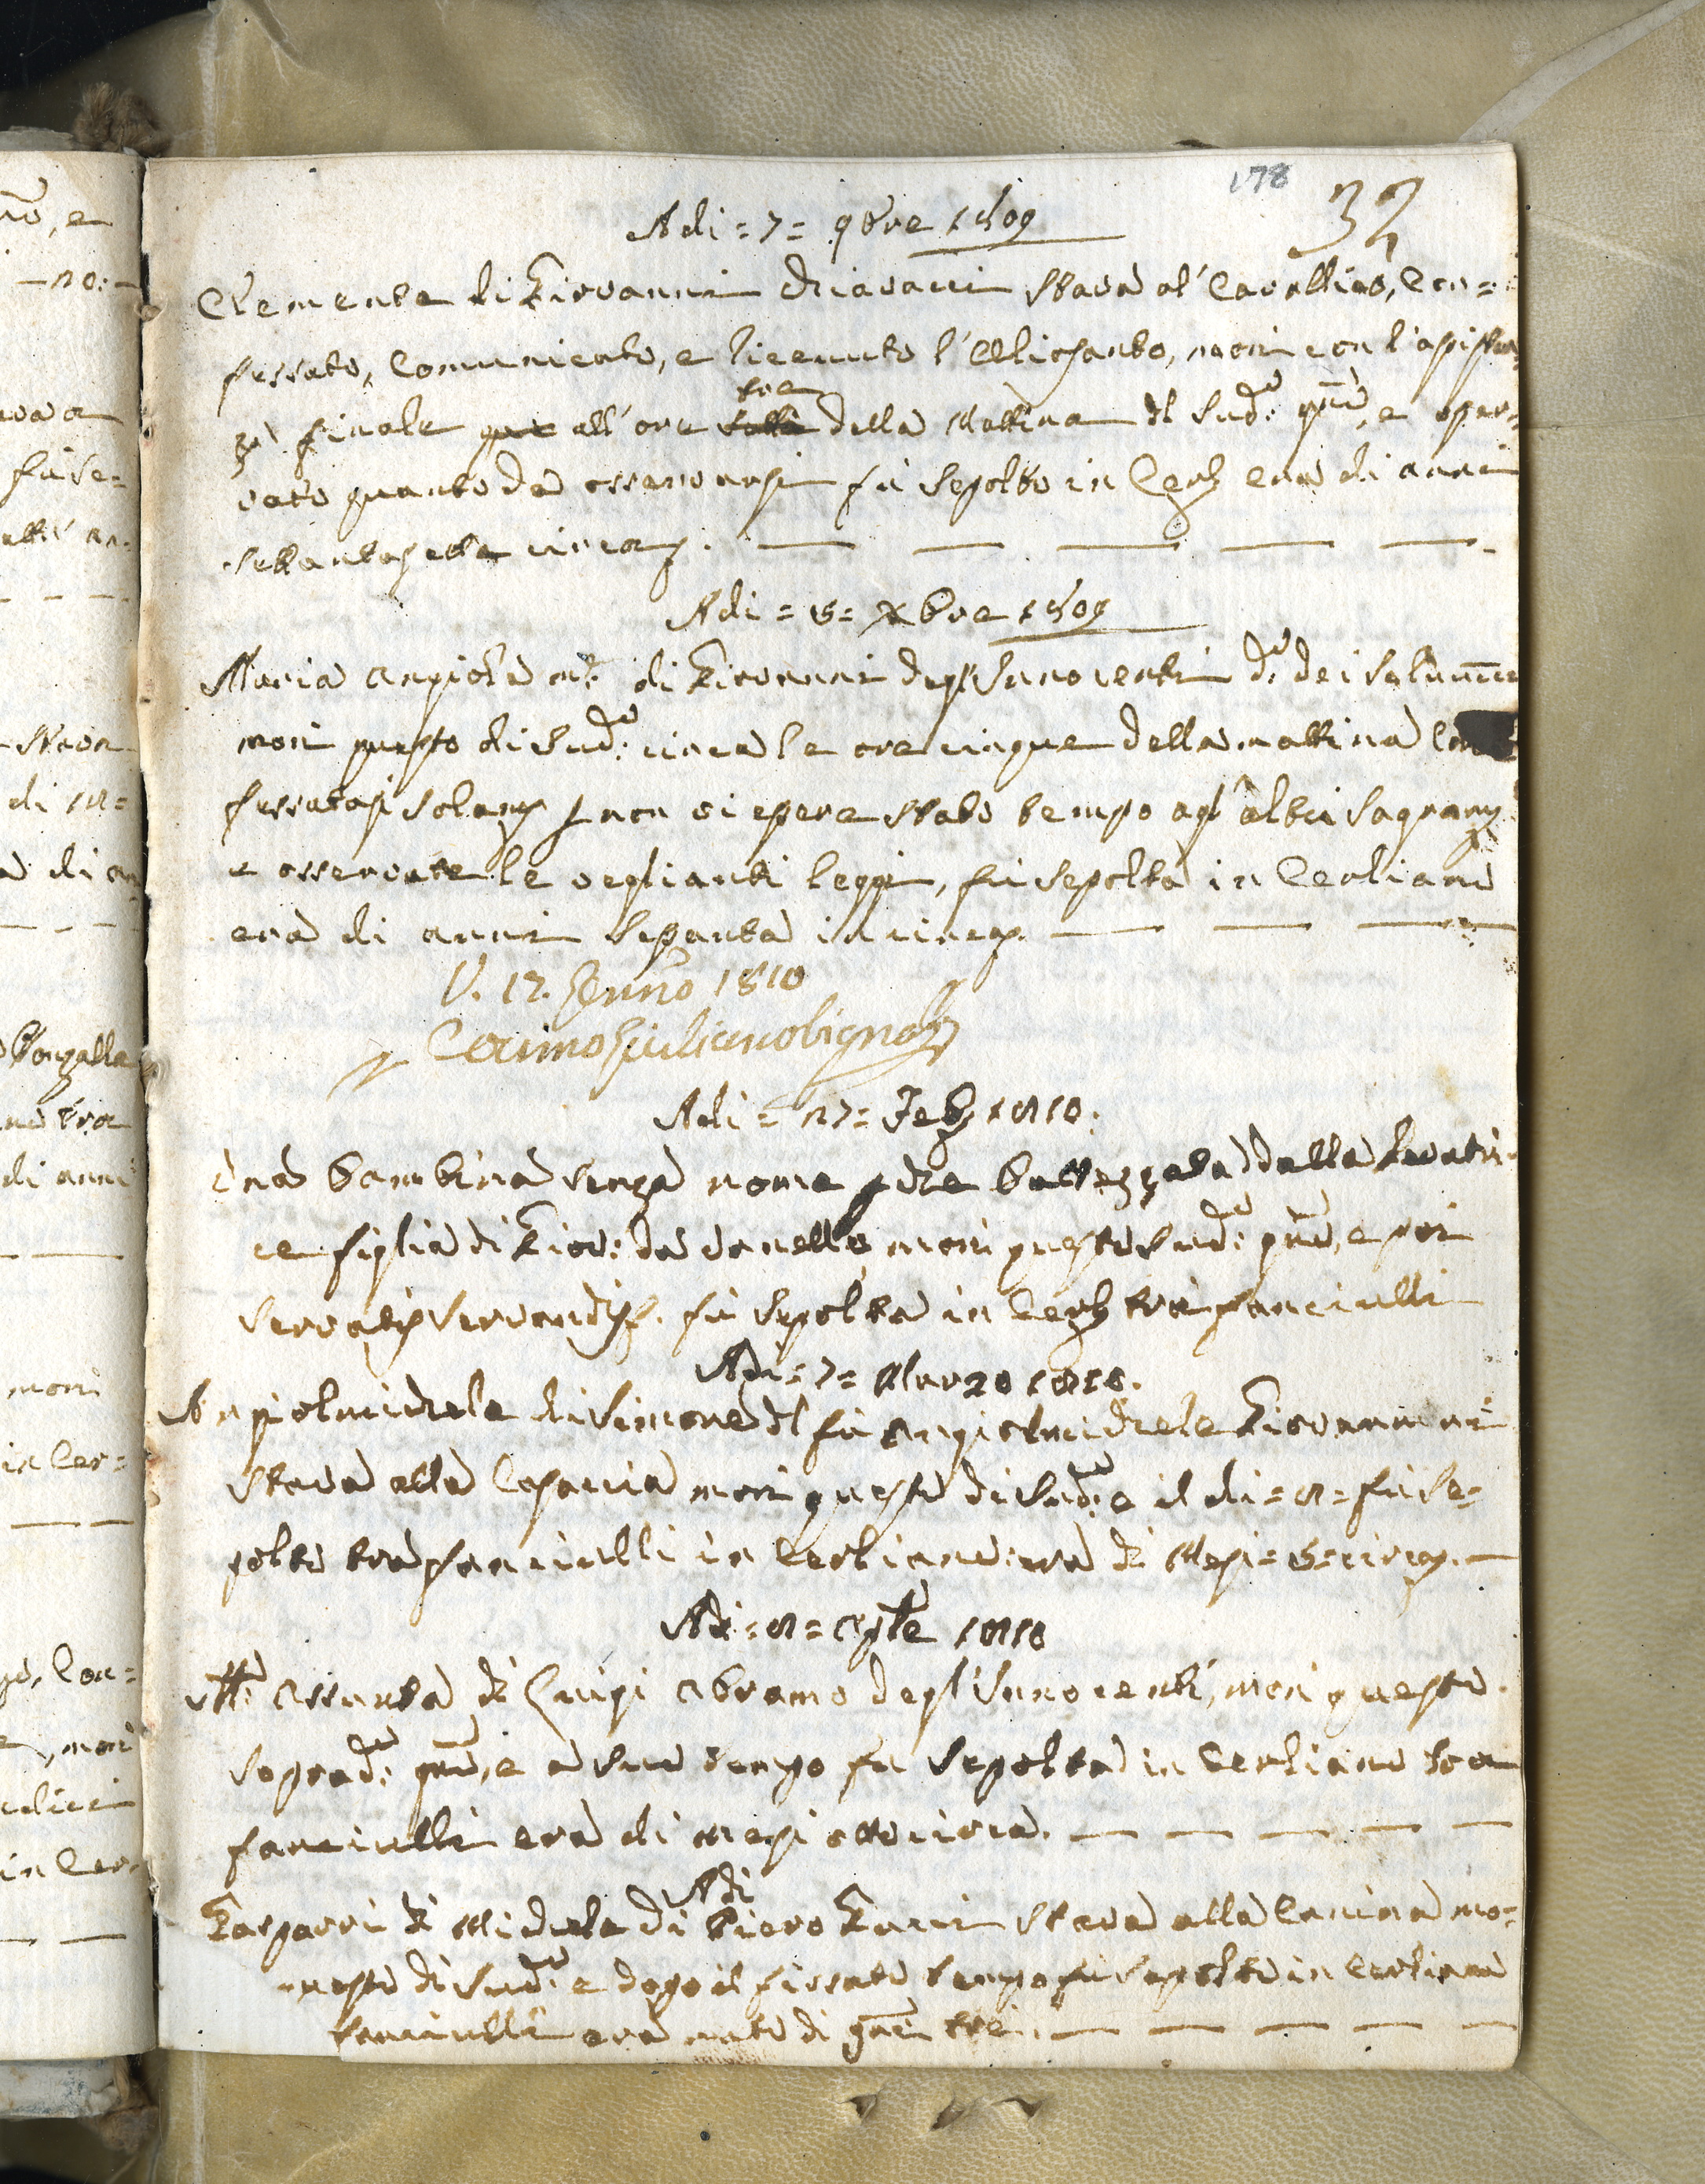 178 32
Adi = 7 = 9bre 1809
Clemente di Giovanni Chiavacci stava al' Cavallino, Con=
fessato, Comunicato, e ricevuto l'Oliosanto, morì con l'assisten
za finale all'ore tre della Mattina del Sud:o gno, e osser=
vato quanto da osservarsi fù sepolto in Cerl: era di anni
settantasette circa.
Adi = 15 = Xbre 1809
Maria Angiola di Giovanni degl'Innocenti d:o dei
morì questo di Sud:o circa le ore cinque della mattina Con
fessatasi solam: p non vi essere stato tempo agl'altri Sagram:
e osservate le veglianti leggi, fù sepolta in Cerliano
era di anni sessanta in circa.
V. 12. Genno 1810
Adi = 27 = Feb: 1810.
Una bambina senza nome p che battezzata dalla Levatri=
ce figlia di Giov: da Vanello, morì questo Sud:o gno, e poi
servatis servandis. fù sepolta in Cerl: tra i fanciulli
Adi = 7 = Marzo 1810.
Angiolmichele di Simone del fù Angiolmichele Giovannini
stava alla Casaccia morì questo di Sud:o e il di = 8 = fù se=
polto tra fanciulli in Cerliano: era di Mesi = 15 = circa.
Adi = 8 = Aple 1810
M:a Assunta di Luigi Abramo degl'Innocenti, morì questo
soprad:o gno, e a suo tempo fu sepolta in Cerliano tra
fanciulli era di mesi otto circa.
Adi
Gasparri di Michele di Piero stava alla Cavina mo=
questo di Sud:o e dopo il fissato tempo fù sepolto in Cerliano
fanciulli era nato di gni tre.